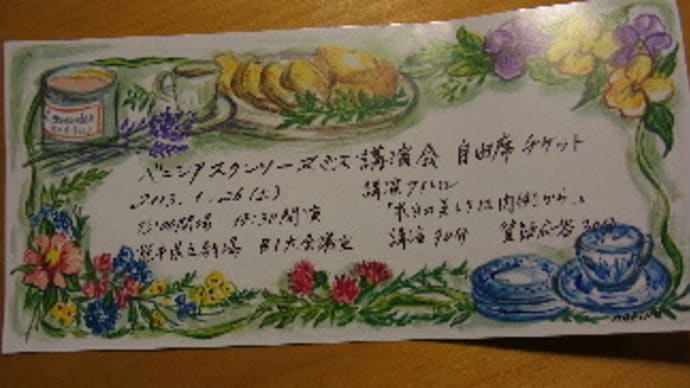 ベニシアスタンリースミス 講演会 自由席 チケット
2013.1.26(土) 講演タイトル
開場 13:30開演 「本当の美しさは内側から。」
県立劇場 B1大会議室 講演90分 質疑応答30分